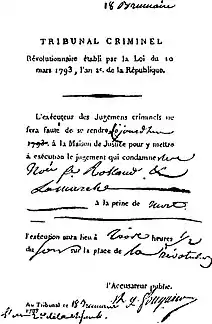 18 Brumaire
TRIBUNAL CRIMINEL
Révolutionnaire établi par la Loi du 10
mars 1793, l'an 2e. de la République.
L'exécuteur des Jugemens criminels ne
fera faute de se rendre
1793 à la Maison de Justice pour y mettre
à exécution le jugement qui condamne
Rolland
Lamarche
à la peine de mort
l'exécution aura lieu à heures
du soir sur la place de la révolution
L'Accusateur public.
Au Tribunal le 18 Brumaire
1793